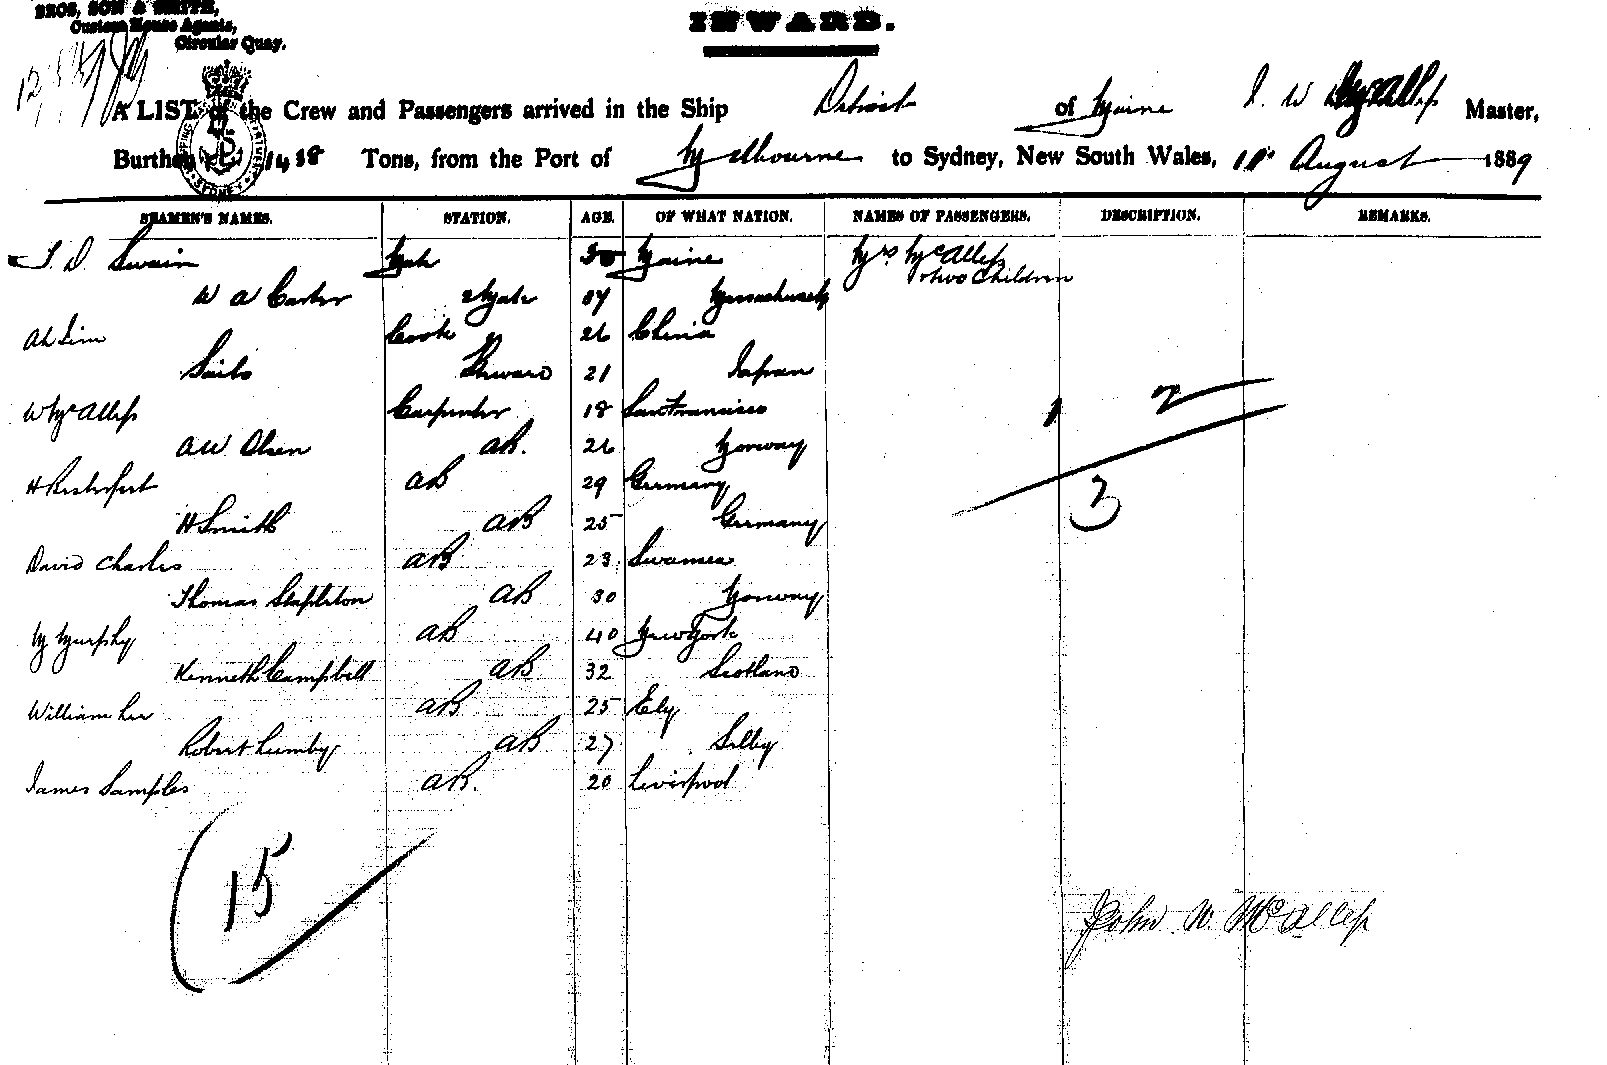 BROS, SON & SMITH,
Custom House Agents,
Circular Quay.
INWARD.
A LIST of the Crew and Passengers arrived in the Ship Detroit of Maine J. W McAllep Master,
Burthen 1438 Tons, from the Port of Melbourne to Sydney, New South Wales, August 1889
SEAMEN'S NAMES. STATION. AGE. OF WHAT NATION. NAMES OF PASSENGERS. DESCRIPTION. REMARKS.
J. D. Swain Mate 30 Maine Mrs McAllep
two Children
W A Carter 2 Mate Massachusets
Ah Sim Cook 26 China
Saito Steward 21 Japan
W McAllep Carpenter 18 San Francisco
1 2
A W Olsen AB. 26 Norway
H AB 29 Germany
3
H Smith AB 25 Germany
David Charles AB 23 Swansea
Thomas Stapleton AB 30 Norway
M Murphy AB 40 New York
Kenneth Campbell AB 32 Scotland
William Lee AB 25 Ely
Robert Lumby AB 27 Selby
James Samples AB. 20 Liverpool
15
John W. McAllep